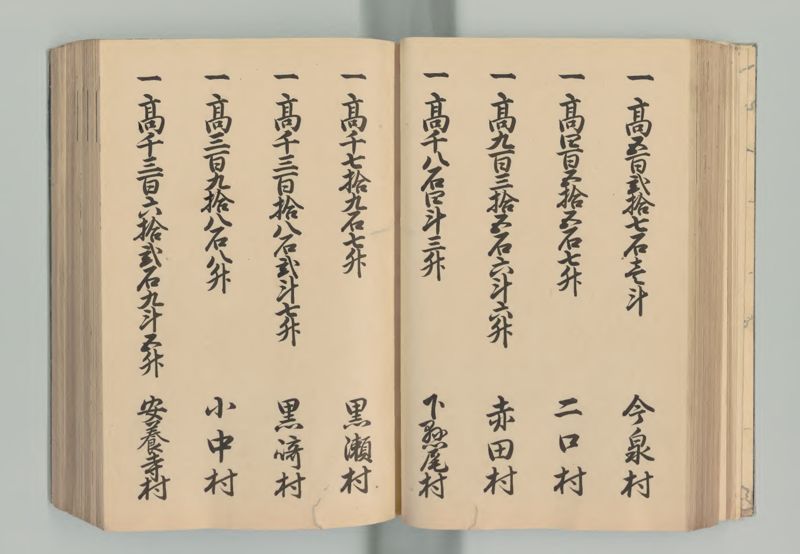 一 高五百弐拾七石壱斗 今泉村
一 高四百五拾五石七升 二口村
一 高九百三拾五石六斗六升 赤田村
一 高千八石四斗三升 下熊尾村
一 高千七拾九石七升 黒瀬村
一 高千三百拾八石弐斗七升 黒崎村
一 高三百九拾八石八升 小中村
一 高千三百六拾弐石九斗五升 安養寺村